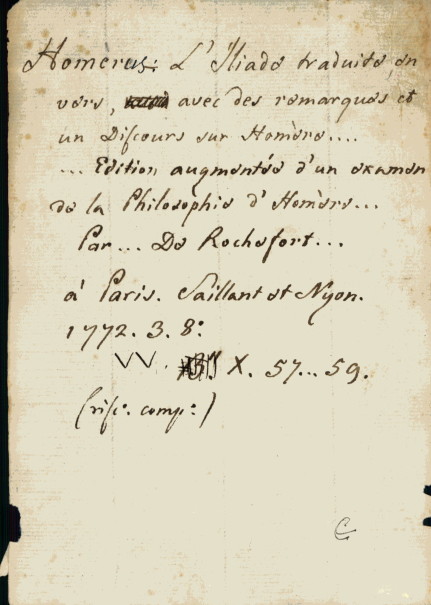 Homerus: L'Iliade traduite en
vers, avec des remarques et
un Discours sur Homère....
... Edition augmentée d'un examen
de la Philosophie d'Homère...
Par... De Rochefort...
à Paris. Saillant et Nyon.
1772. 3. 8:
VV. X. 57... 59.
(risc: comp:)
C